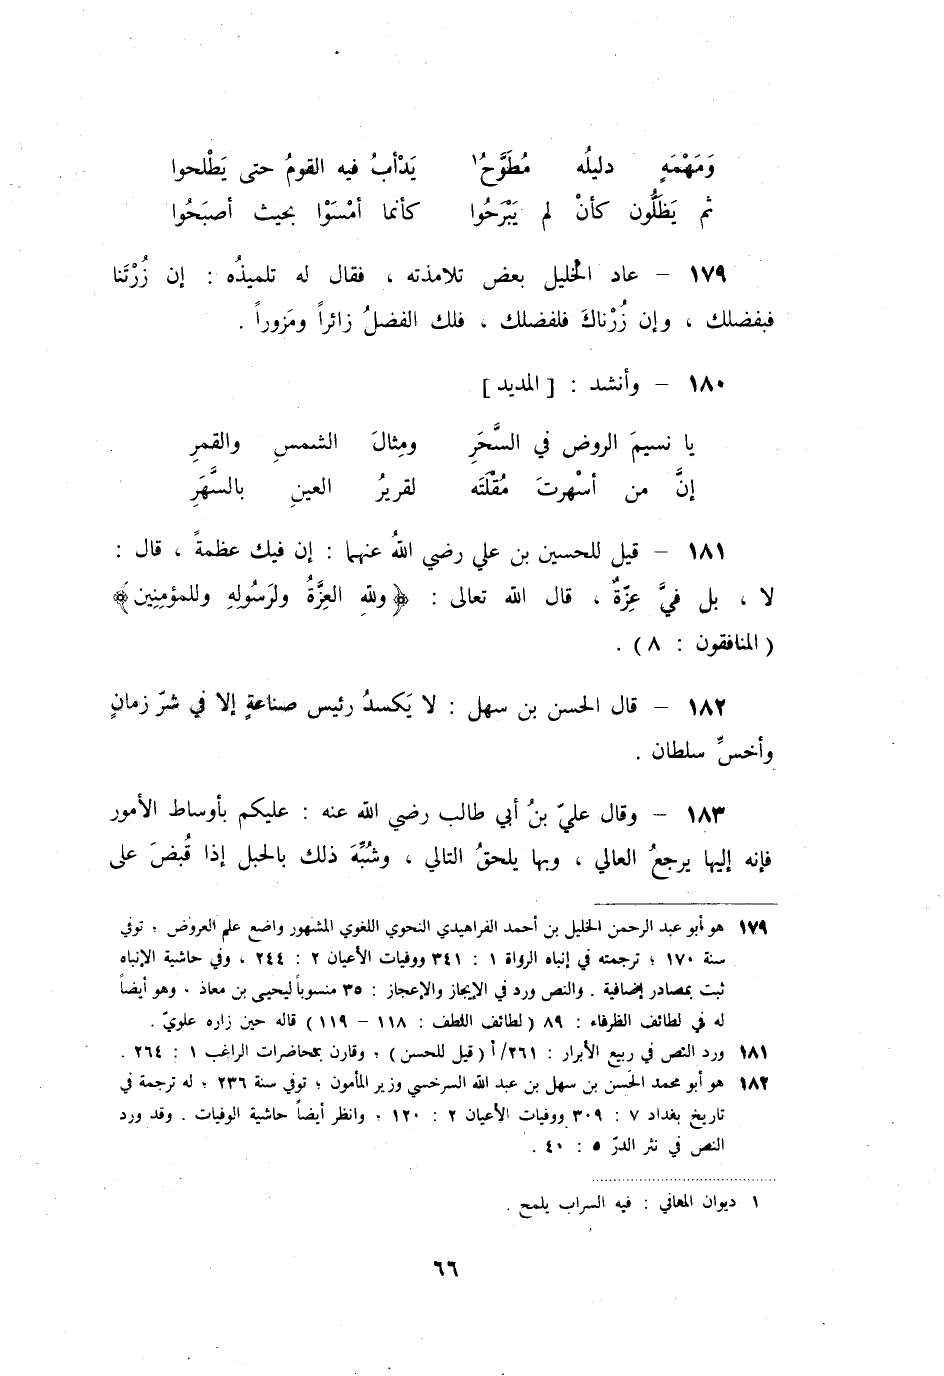 وَمَهْمَهٍ دليلُه مُطَوَّحُ١ يَدْأبُ فيه القومُ حتى يَطْلحوا
ثم يَظَلُّون كأنْ لم يَبْرَحُوا كأنما أمْسَوْا بحيث أصبَحُوا
١٧٩ – عاد الخليل بعض تلامذته ، فقال له تلميذُه : إن زُرْتَنا
فبفضلك ، وإن زُرْناكَ فلفضلك ، فلك الفضلُ زائراً ومَزوراً .
١٨٠ – وأنشد : [ المديد ]
يا نسيمَ الروض في السَّحَرِ ومِثالَ الشمسِ والقمرِ
إنَّ من أسْهرتَ مُقْلَتَه لقريرُ العينِ بالسَّهَرِ
١٨١ – قيل للحسين بن علي رضي اللهُ عنهما : إن فيك عظمةً ، قال :
لا ، بل فيَّ عِزّةٌ ، قال الله تعالى : ﴿وللهِ العِزَّةُ ولرَسُولِهِ وللمؤمِنِين﴾
( المنافقون : ٨ ) .
١٨٢ – قال الحسن بن سهل : لا يَكسدُ رئيس صناعةٍ إلا في شرّ زمانٍ
وأخسِّ سلطان .
١٨٣ – وقال عليّ بنُ أبي طالب رضي الله عنه : عليكم بأوساط الأمور
فإنه إليها يرجعُ العالي ، وبها يلحقُ التالي ، وشُبِّهَ ذلك بالحبل إذا قُبضَ على
١٧٩ هو أبو عبد الرحمن الخليل بن أحمد الفراهيدي النحوي اللغوي المشهور واضع علم العروض ؛ توفي
سنة ١٧٠ ؛ ترجمته في إنباه الرواة ١ : ٣٤١ ووفيات الأعيان ٢ : ٢٤٤ ، وفي حاشية الإنباه
ثبت بمصادر إضافية . والنص ورد في الإيجاز والإعجاز : ٣٥ منسوباً ليحيى بن معاذ . وهو أيضاً
له في لطائف الظرفاء : ٨٩ ( لطائف اللطف : ١١٨ – ١١٩ ) قاله حين زاره علويّ .
١٨١ ورد النص في ربيع الأبرار : ٢٦١/أ ( قيل للحسن ) ؛ وقارن بمحاضرات الراغب ١ : ٢٦٤ .
١٨٢ هو أبو محمد الحسن بن سهل بن عبد الله السرخسي وزير المأمون ؛ توفي سنة ٢٣٦ ؛ له ترجمة في
تاريخ بغداد ٧ : ٣٠٩ ووفيات الأعيان ٢ : ١٢٠ ؛ وانظر أيضاً حاشية الوفيات . وقد ورد
النص في نثر الدرّ ٥ : ٤٠ .
١ ديوان المعاني : فيه السراب يلمح .
٦٦